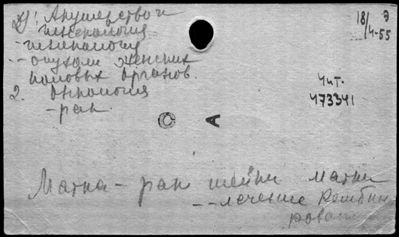 Акушерство и
гинекология
гинекология
-- опухоли женских
половых органов.
2. Онкология
- рак.
18/4-55
Э
Чит.
473341
A
Матка - рак шейки матки
-- лечение комбини
рован